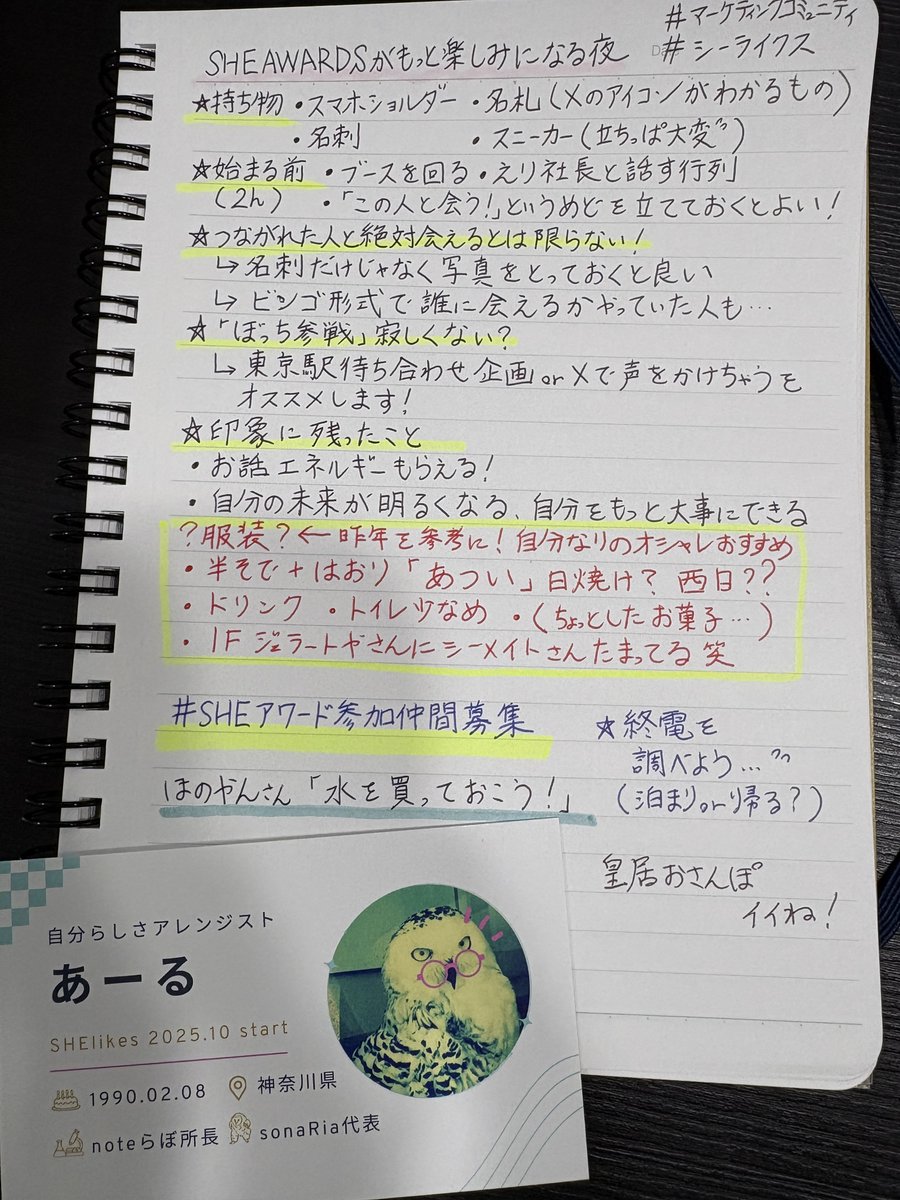 #マーケティングコミュニティ
SHE AWARDSがもっと楽しみになる夜 #シーライクス
☆持ち物 ・スマホショルダー ・名札(Xのアイコンがわかるもの)
・名刺 ・スニーカー(立ちっぱ大変〃)
☆始まる前 ・ブースを回る ・えり社長と話す行列
(2h) ・「この人と会う!」というめどを立てておくとよい!
☆つながれた人と絶対会えるとは限らない!
↳名刺だけじゃなく写真をとっておくと良い
↳ビンゴ形式で誰に会えるかやっていた人も…
☆「ぼっち参戦」寂しくない?
↳東京駅待ち合わせ企画orXで声をかけちゃうを
オススメします!
☆印象に残ったこと
・お話エネルギーもらえる!
・自分の未来が明るくなる、自分をもっと大事にできる
?服装?←昨年を参考に!自分なりのオシャレおすすめ
・半そで+はおり「あつい」日焼け?西日??
・ドリンク ・トイレ少なめ ・(ちょっとしたお菓子…)
・1F ジェラートやさんにシーメイトさんたまってる 笑
#SHEアワード参加仲間募集
☆終電を
調べよう…〃
(泊まりor帰る?)
ほのやんさん「水を買っておこう!」
皇居おさんぽ
イイね!
自分らしさアレンジスト
あーる
SHElikes 2025.10 start
1990.02.08 神奈川県
noteらぼ所長 sonaRia代表